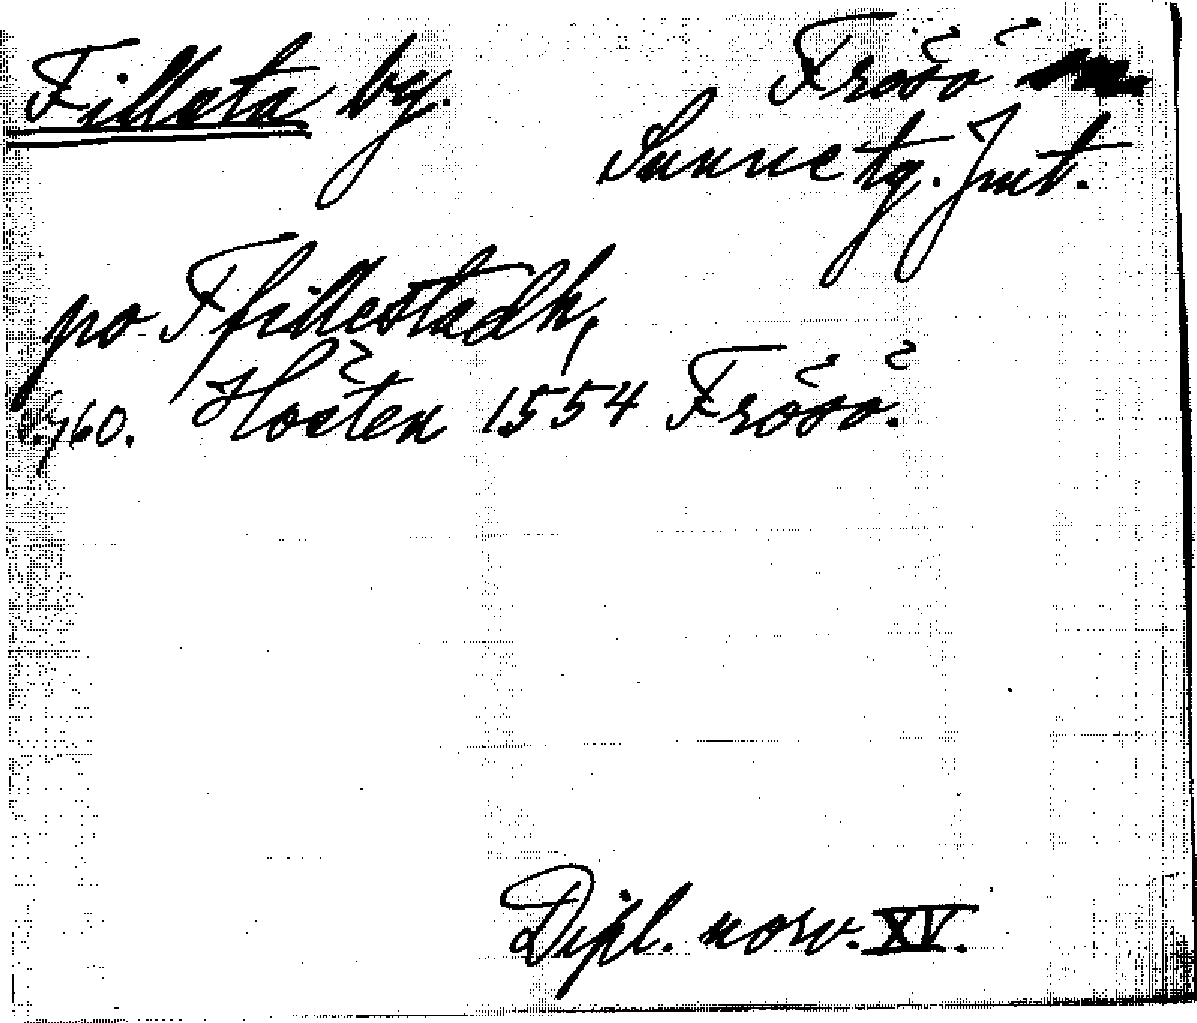 Fillsta by. Frösö
Sunne tg. Jmt.
po Ffillestadh,
s. 760. Hösten 1554 Frösö.
Dipl. norv. XV.